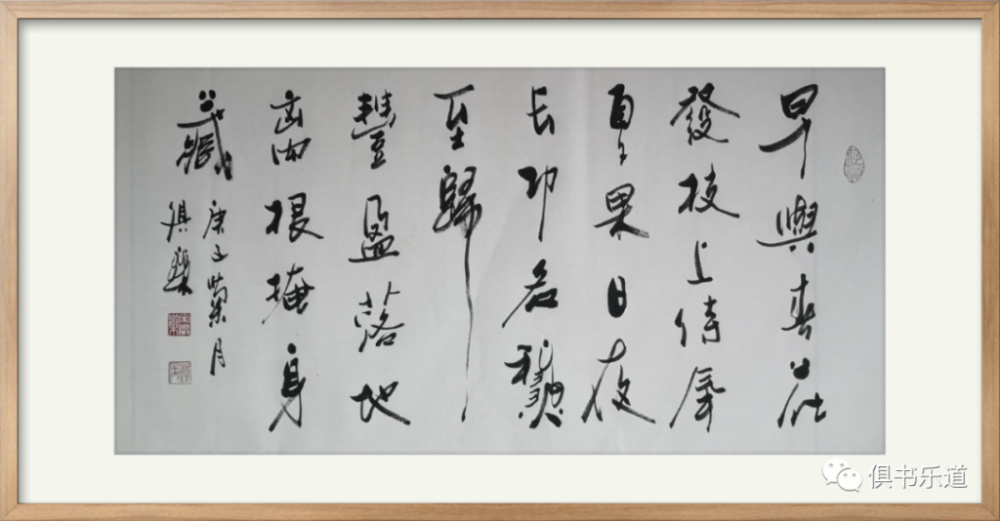 早與春花
發枝上
夏果日夜
长功名
至歸
豐盈落地
根掩身
藏
庚子月
俱樂
俱书乐道